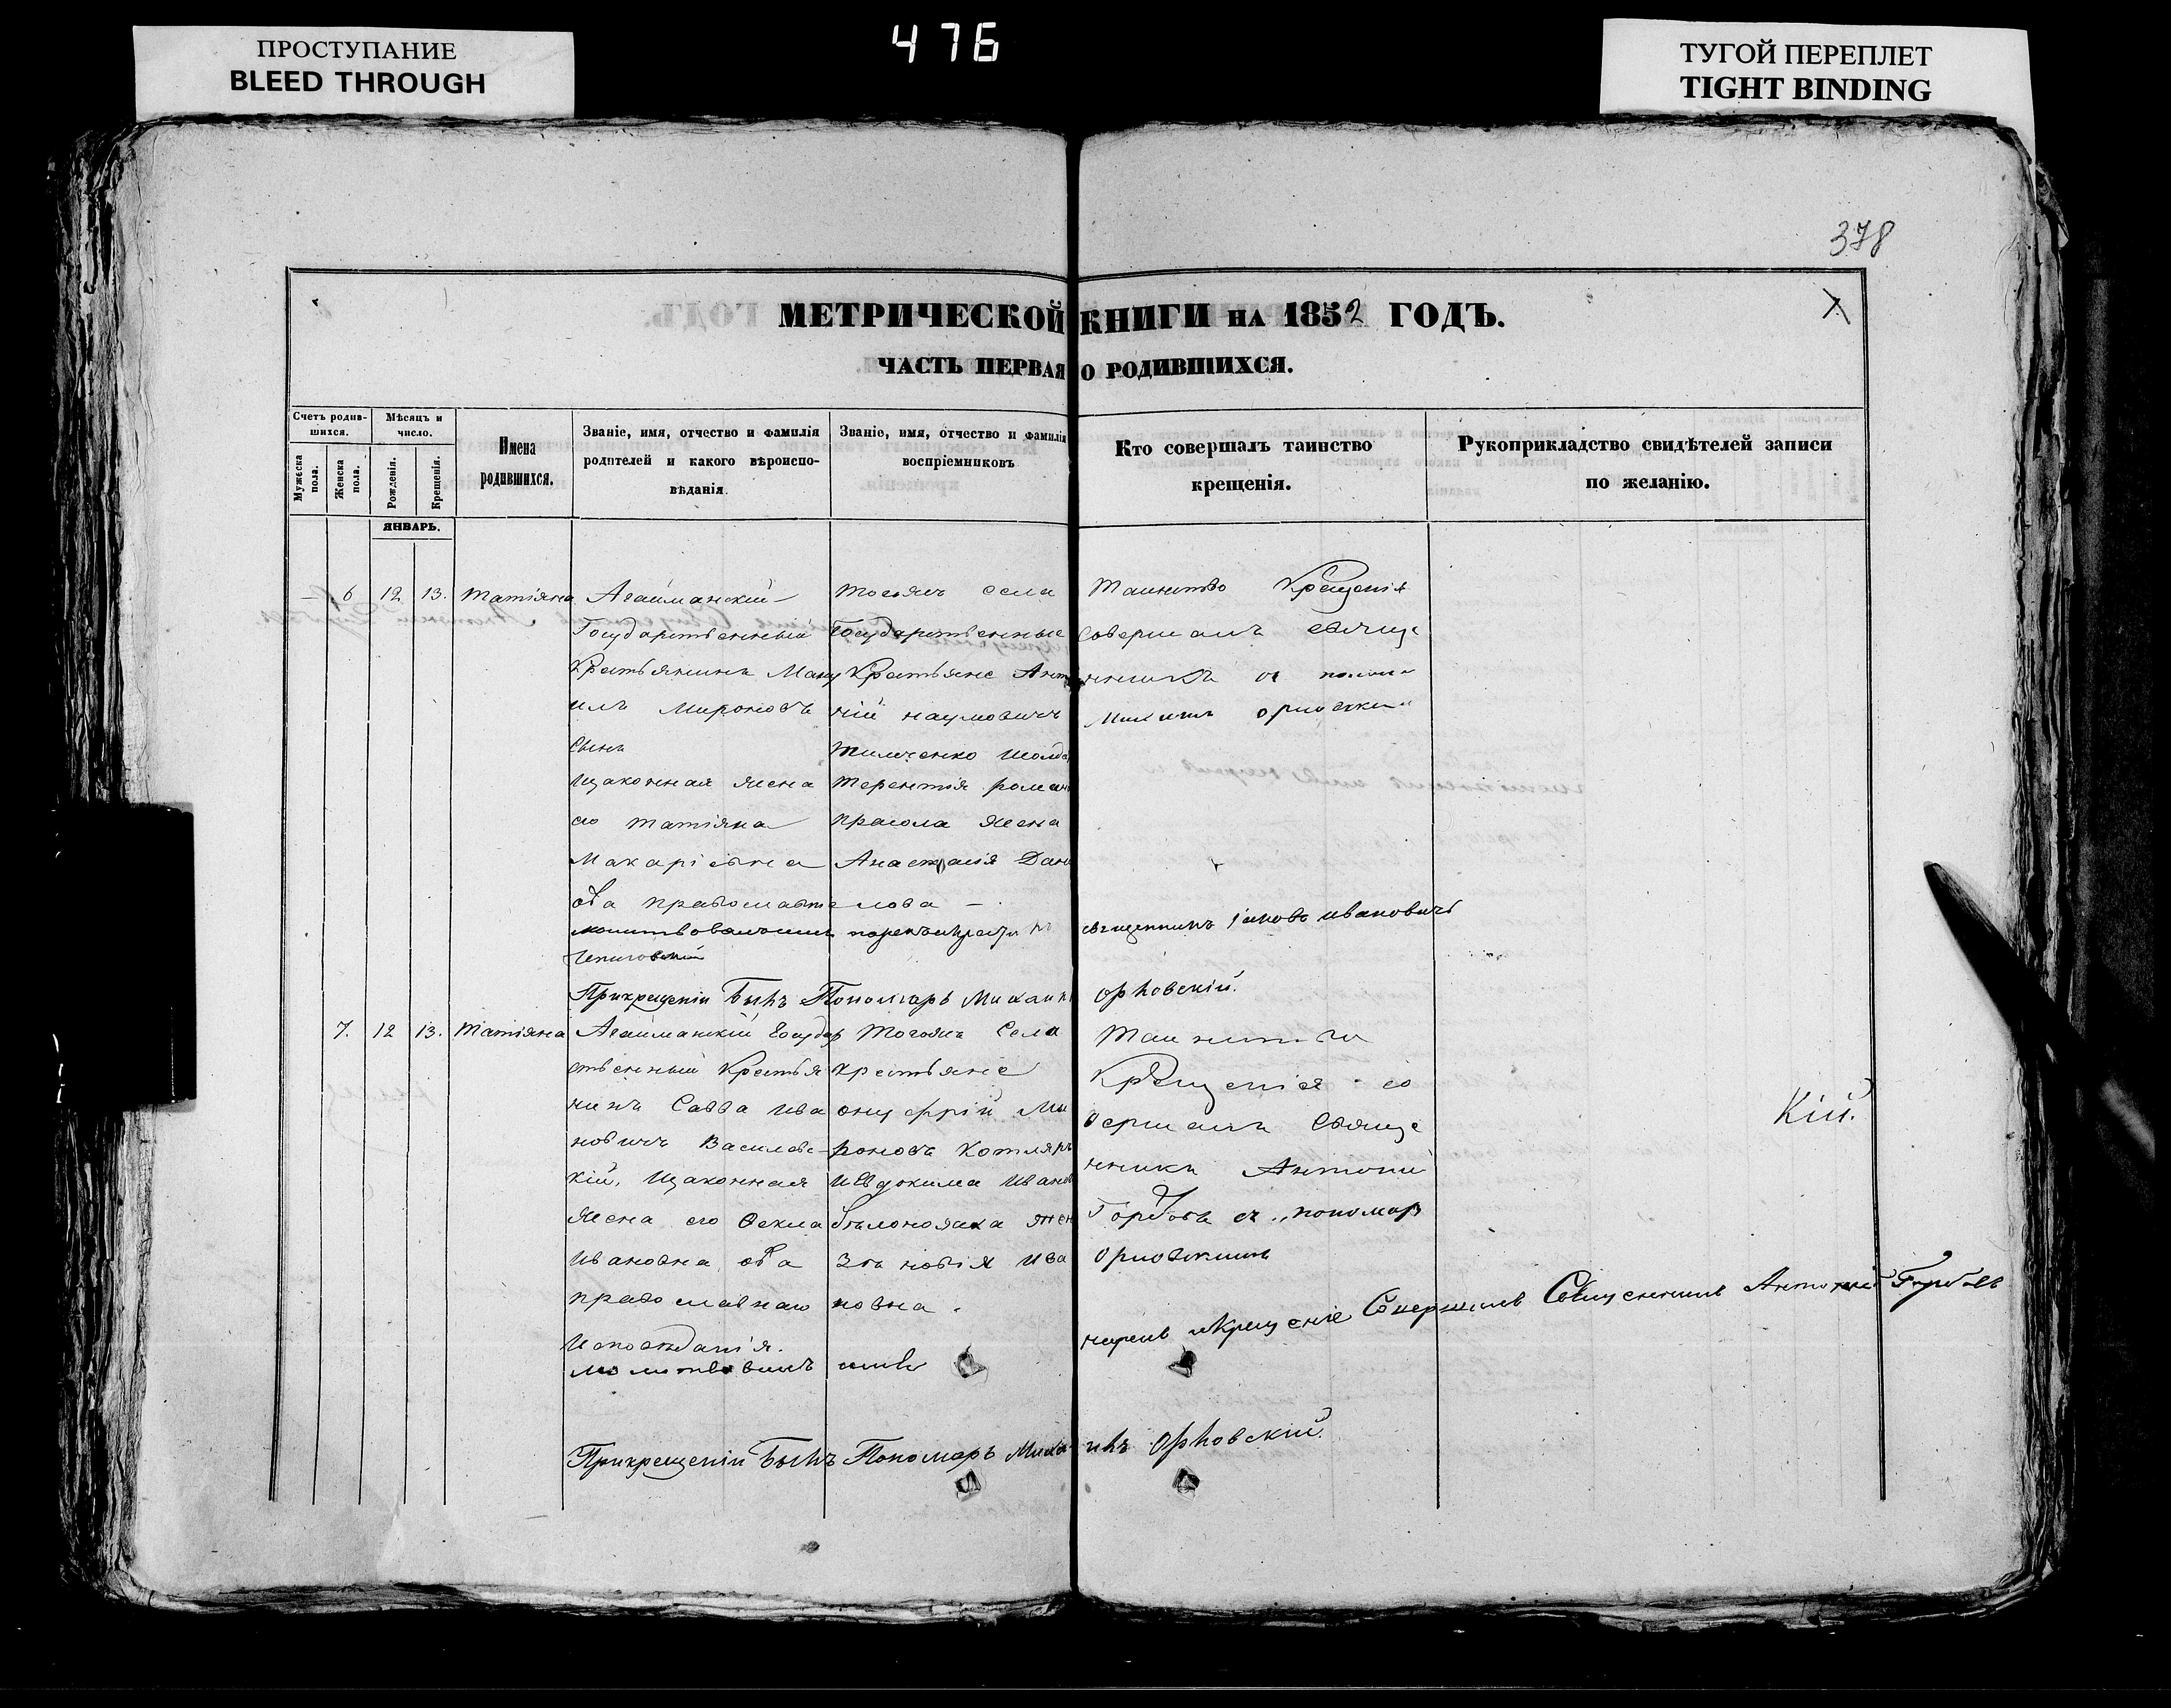 ПРОСТУПАНИЕ
BLEED THROUGH
476
ТУГОЙ ПЕРЕПЛЕТ
TIGHT BINDING
378
МЕТРИЧЕСКОЙ КНИГИ НА 1852 ГОДЪ.
ЧАСТЬ ПЕРВАЯ О РОДИВШИХСЯ.
Счетъ родив-
шихся.
Мужеска
пола.
Женска
пола.
Мѣсяцъ и
число.
Рожденія.
Крещенія.
Имена
родившихся.
Званіе, имя, отчество и фамилія
родителей и какого вѣроиспо-
вѣданія.
Званіе, имя, отчество и фамилія
воспріемниковъ
Кто совершалъ таинство
крещенія.
Рукоприкладство свидѣтелей записи
по желанію.
ЯНВАРЬ.
— 6 12 13. Татіяна
Агайманскій
Государственный
Крестьянинъ Ману
илъ Мироновъ
сынъ
Изаконная жена
его Татіяна
Макаріевна
оба православна
Тогожъ села
Государственные
Крестьяне Анто
ній Наумовичъ
Тимченко
Терентія роман
жена
Анастасія Дани
лова —
Таинство Крещенія
Совершалъ свяще
нникъ
священникъ Іаковъ Ивановичъ
Прикрещеніи Былъ Пономарь Михаилъ Орловскій.
7. 12 13. Татіяна
Агайманскій Государ
ственный Крестья
нинъ Савва Ива
новичъ Василевс
кій, Изаконная
жена его Фекла
Ивановна оба
православнаго
Исповѣданія.
Тогожъ Села
крестьяне
Онуфрій Ми
роновъ Котляръ
ИЕвдокима Иванов
жена
Зѣновія Ива
новна.
Таинство
Крещенія со
вершалъ Свяще
нникъ Антоній
Горбовъ съ пономар
Орловскимъ
Кій.
нарекъ иКрещеніе Совершилъ Священникъ Антоній Горбовъ
Прикрещеніи Былъ Пономарь Михаилъ Орловскій.